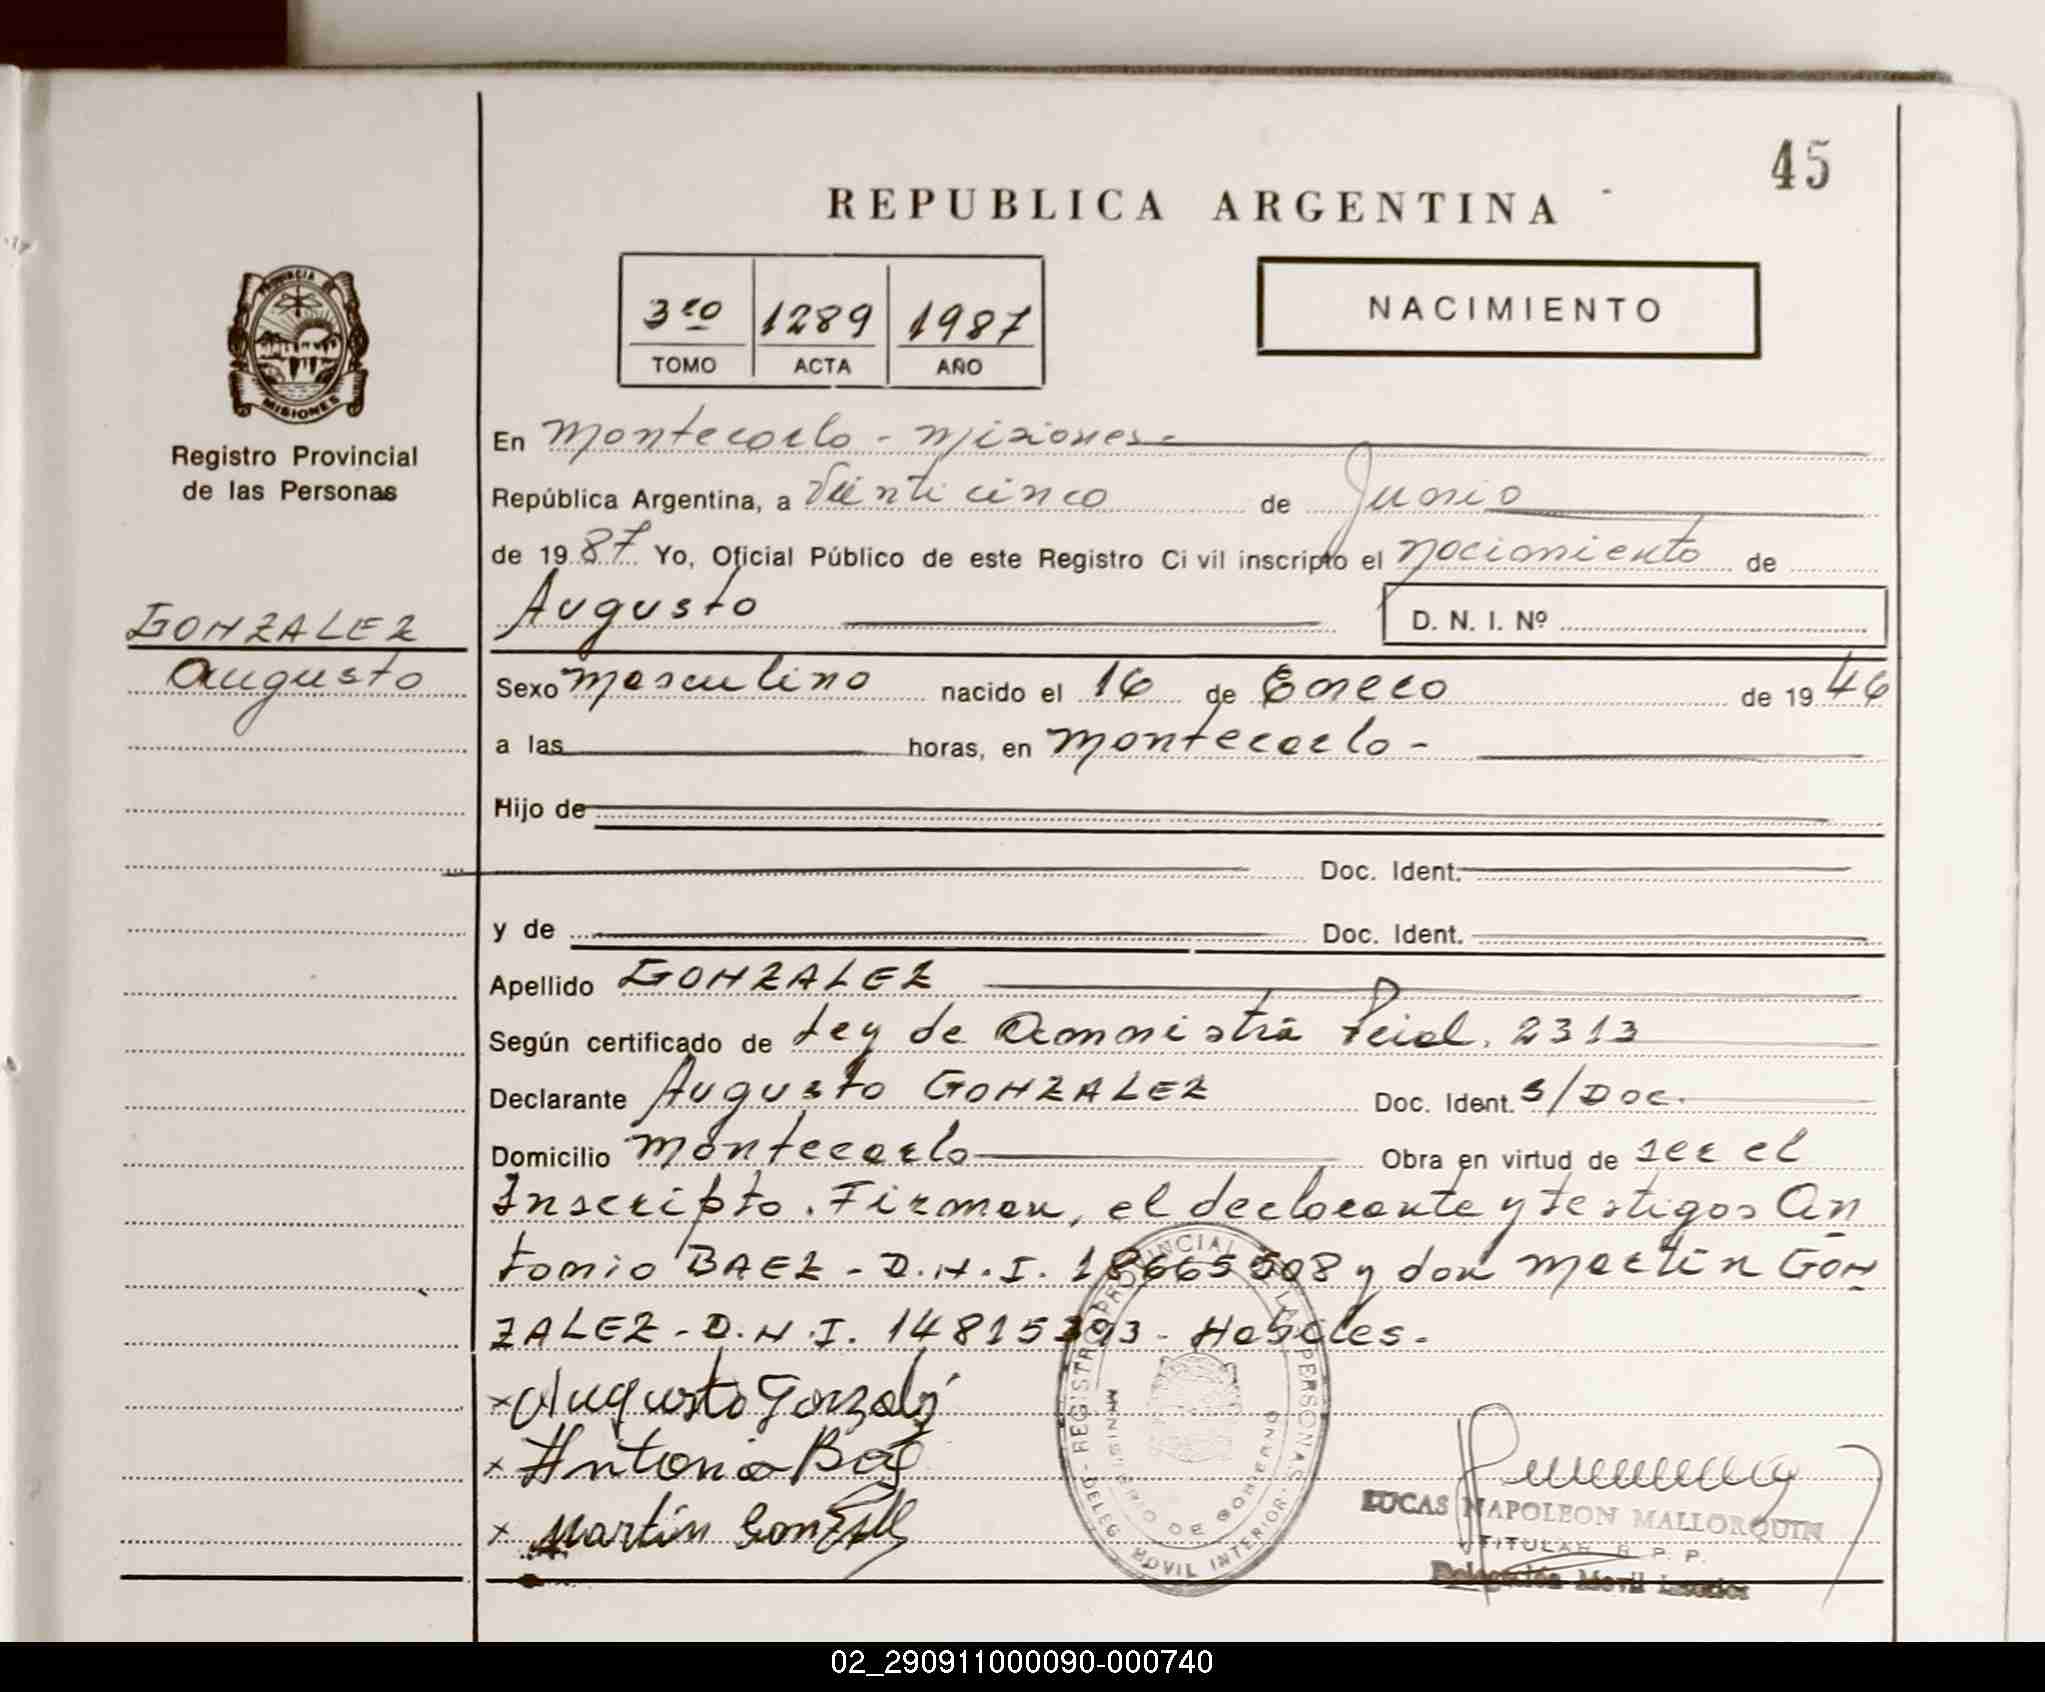 45
REPUBLICA ARGENTINA
3ro 1289 1987
TOMO ACTA AÑO
NACIMIENTO
PROVINCIA DE
MISIONES
Registro Provincial
de las Personas
En Montecarlo - Misiones -
República Argentina, a Veinticinco de Junio
de 1987 Yo, Oficial Público de este Registro Civil inscripto el nacimiento de
GONZALEZ
Augusto
Augusto D. N. I. Nº
Sexo Masculino nacido el 16 de Enero de 1946
a las horas, en Montecarlo -
Hijo de
Doc. Ident.
y de Doc. Ident.
Apellido GONZALEZ
Según certificado de Ley de Amnistía Pcial. 2313
Declarante Augusto GONZALEZ Doc. Ident. s/Doc.
Domicilio Montecarlo Obra en virtud de ser el
Inscripto. Firman, el declarante y testigos An
tonio BAEZ - D.N.I. 18665508 y don Martín GON
ZALEZ - D.N.I. 14815393 - Habiles -
x Augusto Gonzalez
x Antonio Baez
x Martín Gonzalez
REGISTRO PROVINCIAL DE LAS PERSONAS
MINISTERIO DE GOBIERNO
DELEG. MOVIL INTERIOR
LUCAS NAPOLEON MALLORQUIN
TITULAR R. P. P.
Delegación Movil Interior
02_290911000090-000740